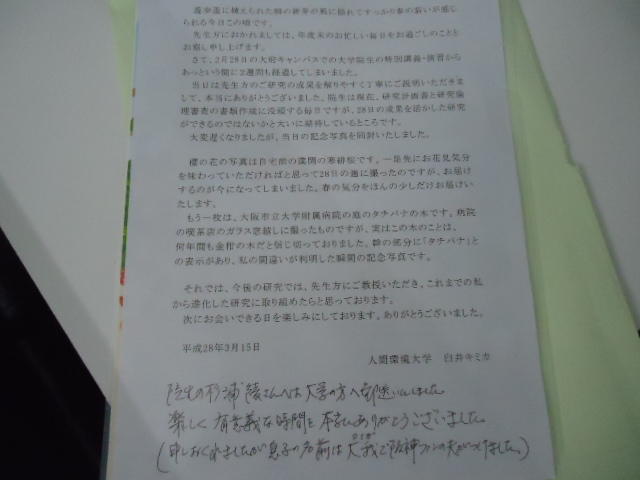 遊歩道に植えられた柳の新芽が風に揺れてすっかり春の装いが感じ
られる今日この頃です。
先生方におかれましては、年度末のお忙しい毎日をお過ごしのことと
お察し申し上げます。
さて、2月28日の大府キャンパスでの大学院生の特別講義・演習から
あっという間に2週間も経過してしまいました。
当日は先生方のご研究の成果を解りやすく丁寧にご説明いただきまし
て、本当にありがとうございました。院生は現在、研究計画書と研究倫
理審査の書類作成に没頭する毎日ですが、28日の成果を活かした研究
ができるのではないかと大いに期待しているところです。
大変遅くなりましたが、当日の記念写真を同封いたしました。
櫻の花の写真は自宅前の公園の寒緋桜です。一足先にお花見気分
を味わっていただければと思って28日の週に撮ったのですが、お届け
するのが今になってしまいました。春の気分をほんの少しだけお届けい
たします。
もう一枚は、大阪市立大学附属病院の庭のタチバナの木です。病院
の喫茶店のガラス窓越しに撮ったものですが、実はこの木のことは、
何年間も金柑の木だと信じ切っておりました。幹の部分に「タチバナ」と
の表示があり、私の間違いが判明した瞬間の記念写真です。
それでは、今後の研究では、先生方にご教授いただき、これまでの私
から進化した研究に取り組めたらと思っております。
次にお会いできる日を楽しみにしております。ありがとうございました。
平成28年3月15日
人間環境大学 白井キミカ
院生の杉浦 さんへは大学の方へ郵送いたしました。
楽しく有意義な時間を本当にありがとうございました。
(申しおくれましたが息子の名前は大我で阪神ファンの夫がつけました。)